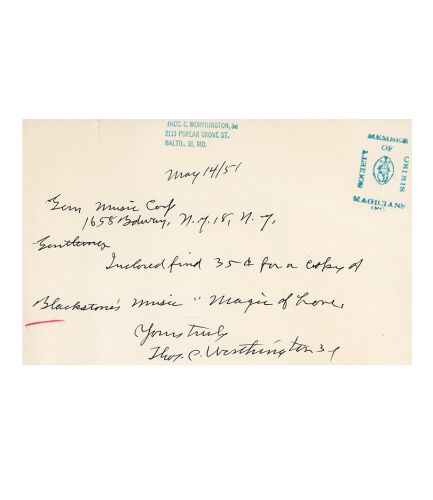 THOS. C. WORTHINGTON, 3d
2113 POPLAR GROVE ST.
BALTO., 16, MD.
MEMBER
OF
OSIRIS
SOCIETY
MAGICIANS
INC.
May 14/51
Gem Music Corp
1658 Bdway, N.Y. 18, N.Y.
Gentlemen
Inclosed find 35¢ for a copy of
Blackstone's Music "Magic of Love,
Yours truly
Thos. C. Worthington 3d